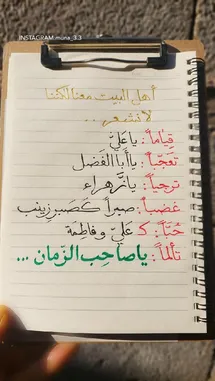 INSTAGRAM muna_3.3
أهل البيت معنا لكننا
لا نشعر ..
قياماً : يا عليّ
تعجّباً : يا أبا الفَضل
ترجياً : يا زهراء
غضباً : صبراً كَصبرِ زينب
حُبّاً : كـ عَليّ و فاطمة
تألماً : يا صاحِب الزّمان ...